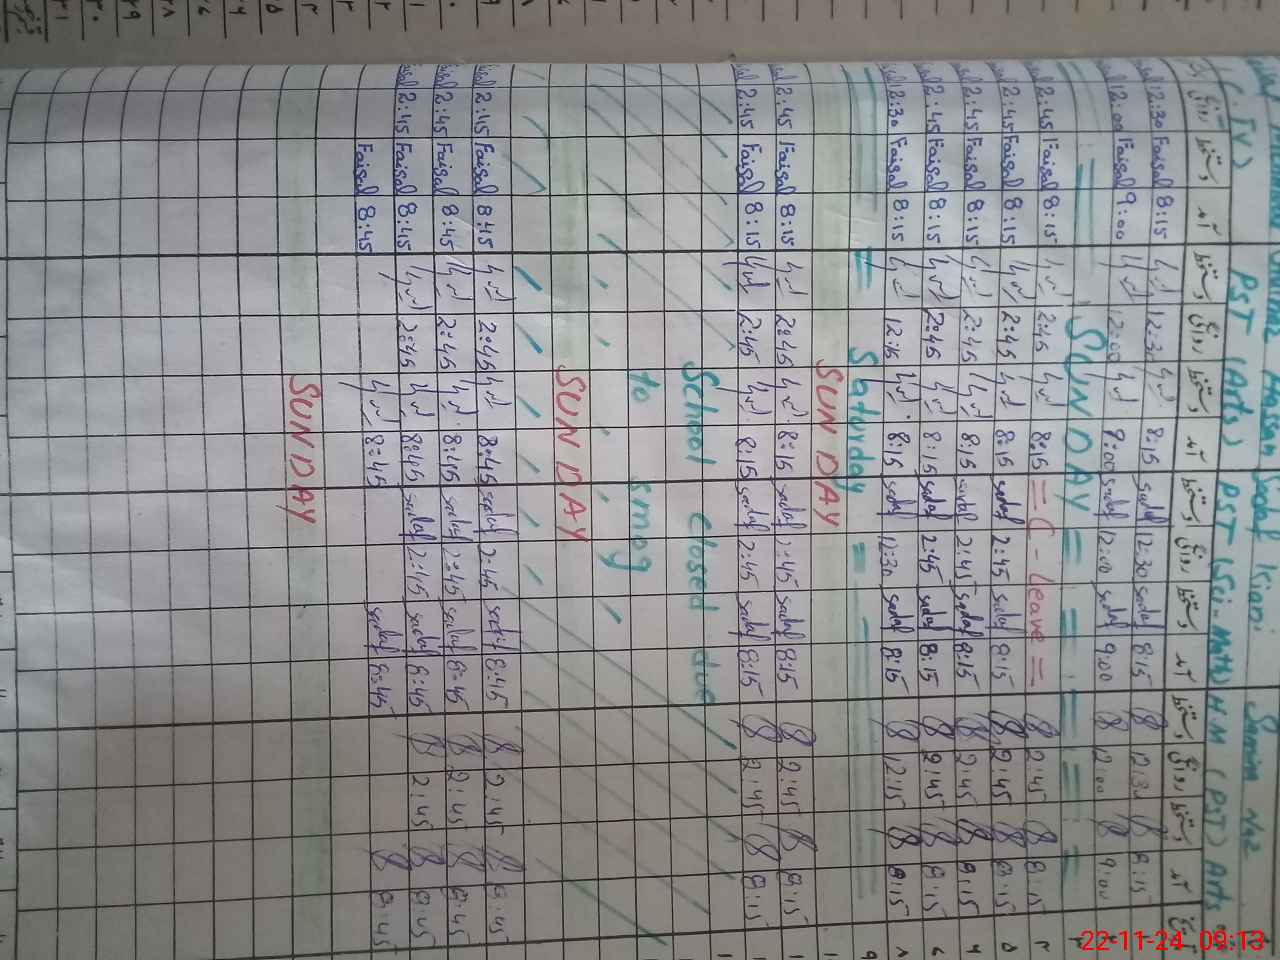 Hassan Sadaf Kiani Samina Naz
(C.IV) PST (Arts) PST (Sci-Math) H.M (PST) Arts
روانگی دستخط آمد دستخط روانگی دستخط آمد دستخط روانگی دستخط آمد دستخط روانگی دستخط آمد تاریخ
12:30 Faisal 8:15 12:30 8:15 sadaf 12:30 sadaf 8:15 12:30 8:15
12:00 Faisal 9:00 12:00 9:00 sadaf 12:00 sadaf 9:00 12:00 9:00 ۲
= SUNDAY = = = = ۳
2:45 Faisal 8:15 2:45 8:15 = C - leave = 2:45 8:15 ۴
2:45 Faisal 8:15 2:45 8:15 sadaf 2:45 sadaf 8:15 2:45 8:15 ۵
2:45 Faisal 8:15 2:45 8:15 sadaf 2:45 sadaf 8:15 2:45 8:15 ۶
2:45 Faisal 8:15 2:45 8:15 sadaf 2:45 sadaf 8:15 2:45 8:15 ۷
12:30 Faisal 8:15 12:15 8:15 sadaf 12:30 sadaf 8:15 12:15 8:15 ۸
= Saturday = ۹
SUNDAY
2:45 Faisal 8:15 2:45 8:15 sadaf 2:45 sadaf 8:15 2:45 8:15
2:45 Faisal 8:15 2:45 8:15 sadaf 2:45 sadaf 8:15 2:45 8:15
School closed due
to smog
SUNDAY
2:45 Faisal 8:45 2:45 8:45 sadaf 2:45 sadaf 8:45 2:45 8:45
2:45 Faisal 8:45 2:45 8:45 sadaf 2:45 sadaf 8:45 2:45 8:45
2:45 Faisal 8:45 2:45 8:45 sadaf 2:45 sadaf 8:45 2:45 8:45
Faisal 8:45 8:45 sadaf 8:45 8:45
SUNDAY
22-11-24 09:13